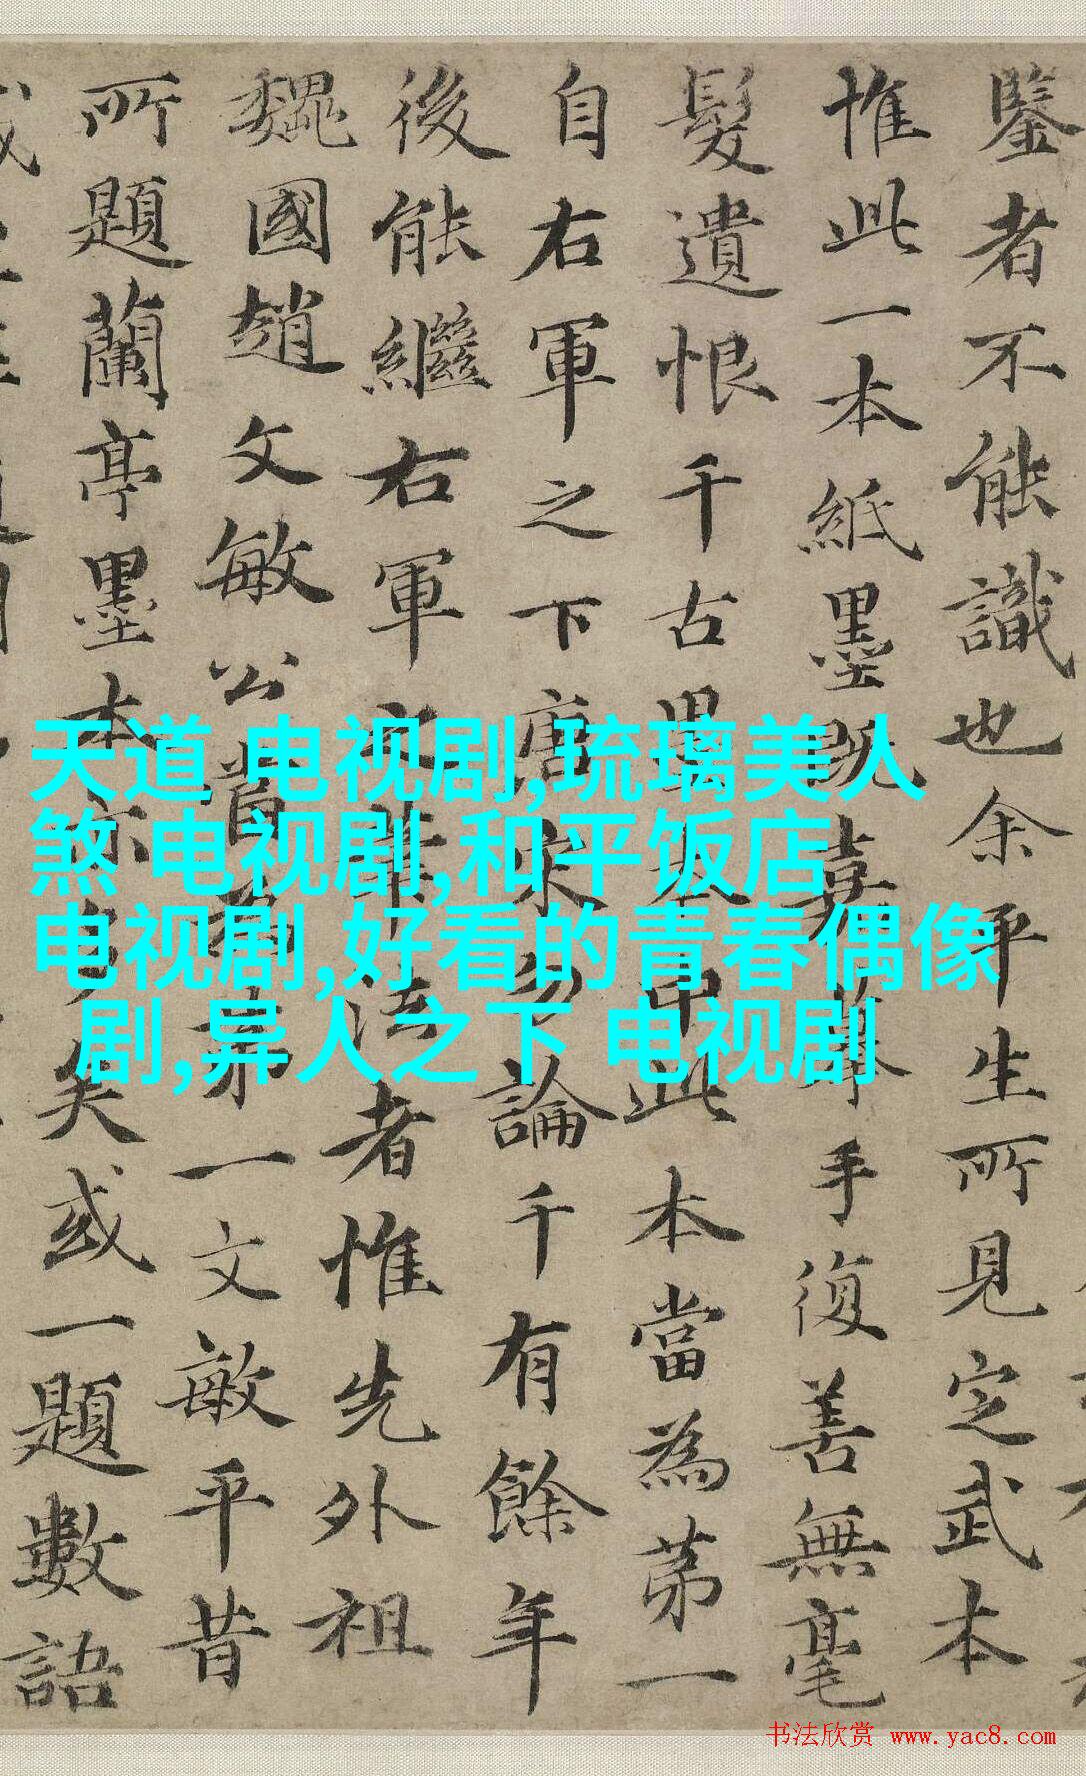 鑒者不能識也余平生所見定武本
惟此一本紙墨既嘉摹手復善無毫
髮遺恨千古墨本中此本當為第一
自右軍之下唐宋勿論千有餘年
後能繼右軍之筆法者惟先外祖
魏國趙文敏公嘗為第一文敏平昔
所題蘭亭墨本亦多矣或一題數語
天道 电视剧,琉璃美人
煞 电视剧,和平饭店
电视剧,好看的青春偶像
剧,异人之下 电视剧
书法欣赏 www.yac8.com